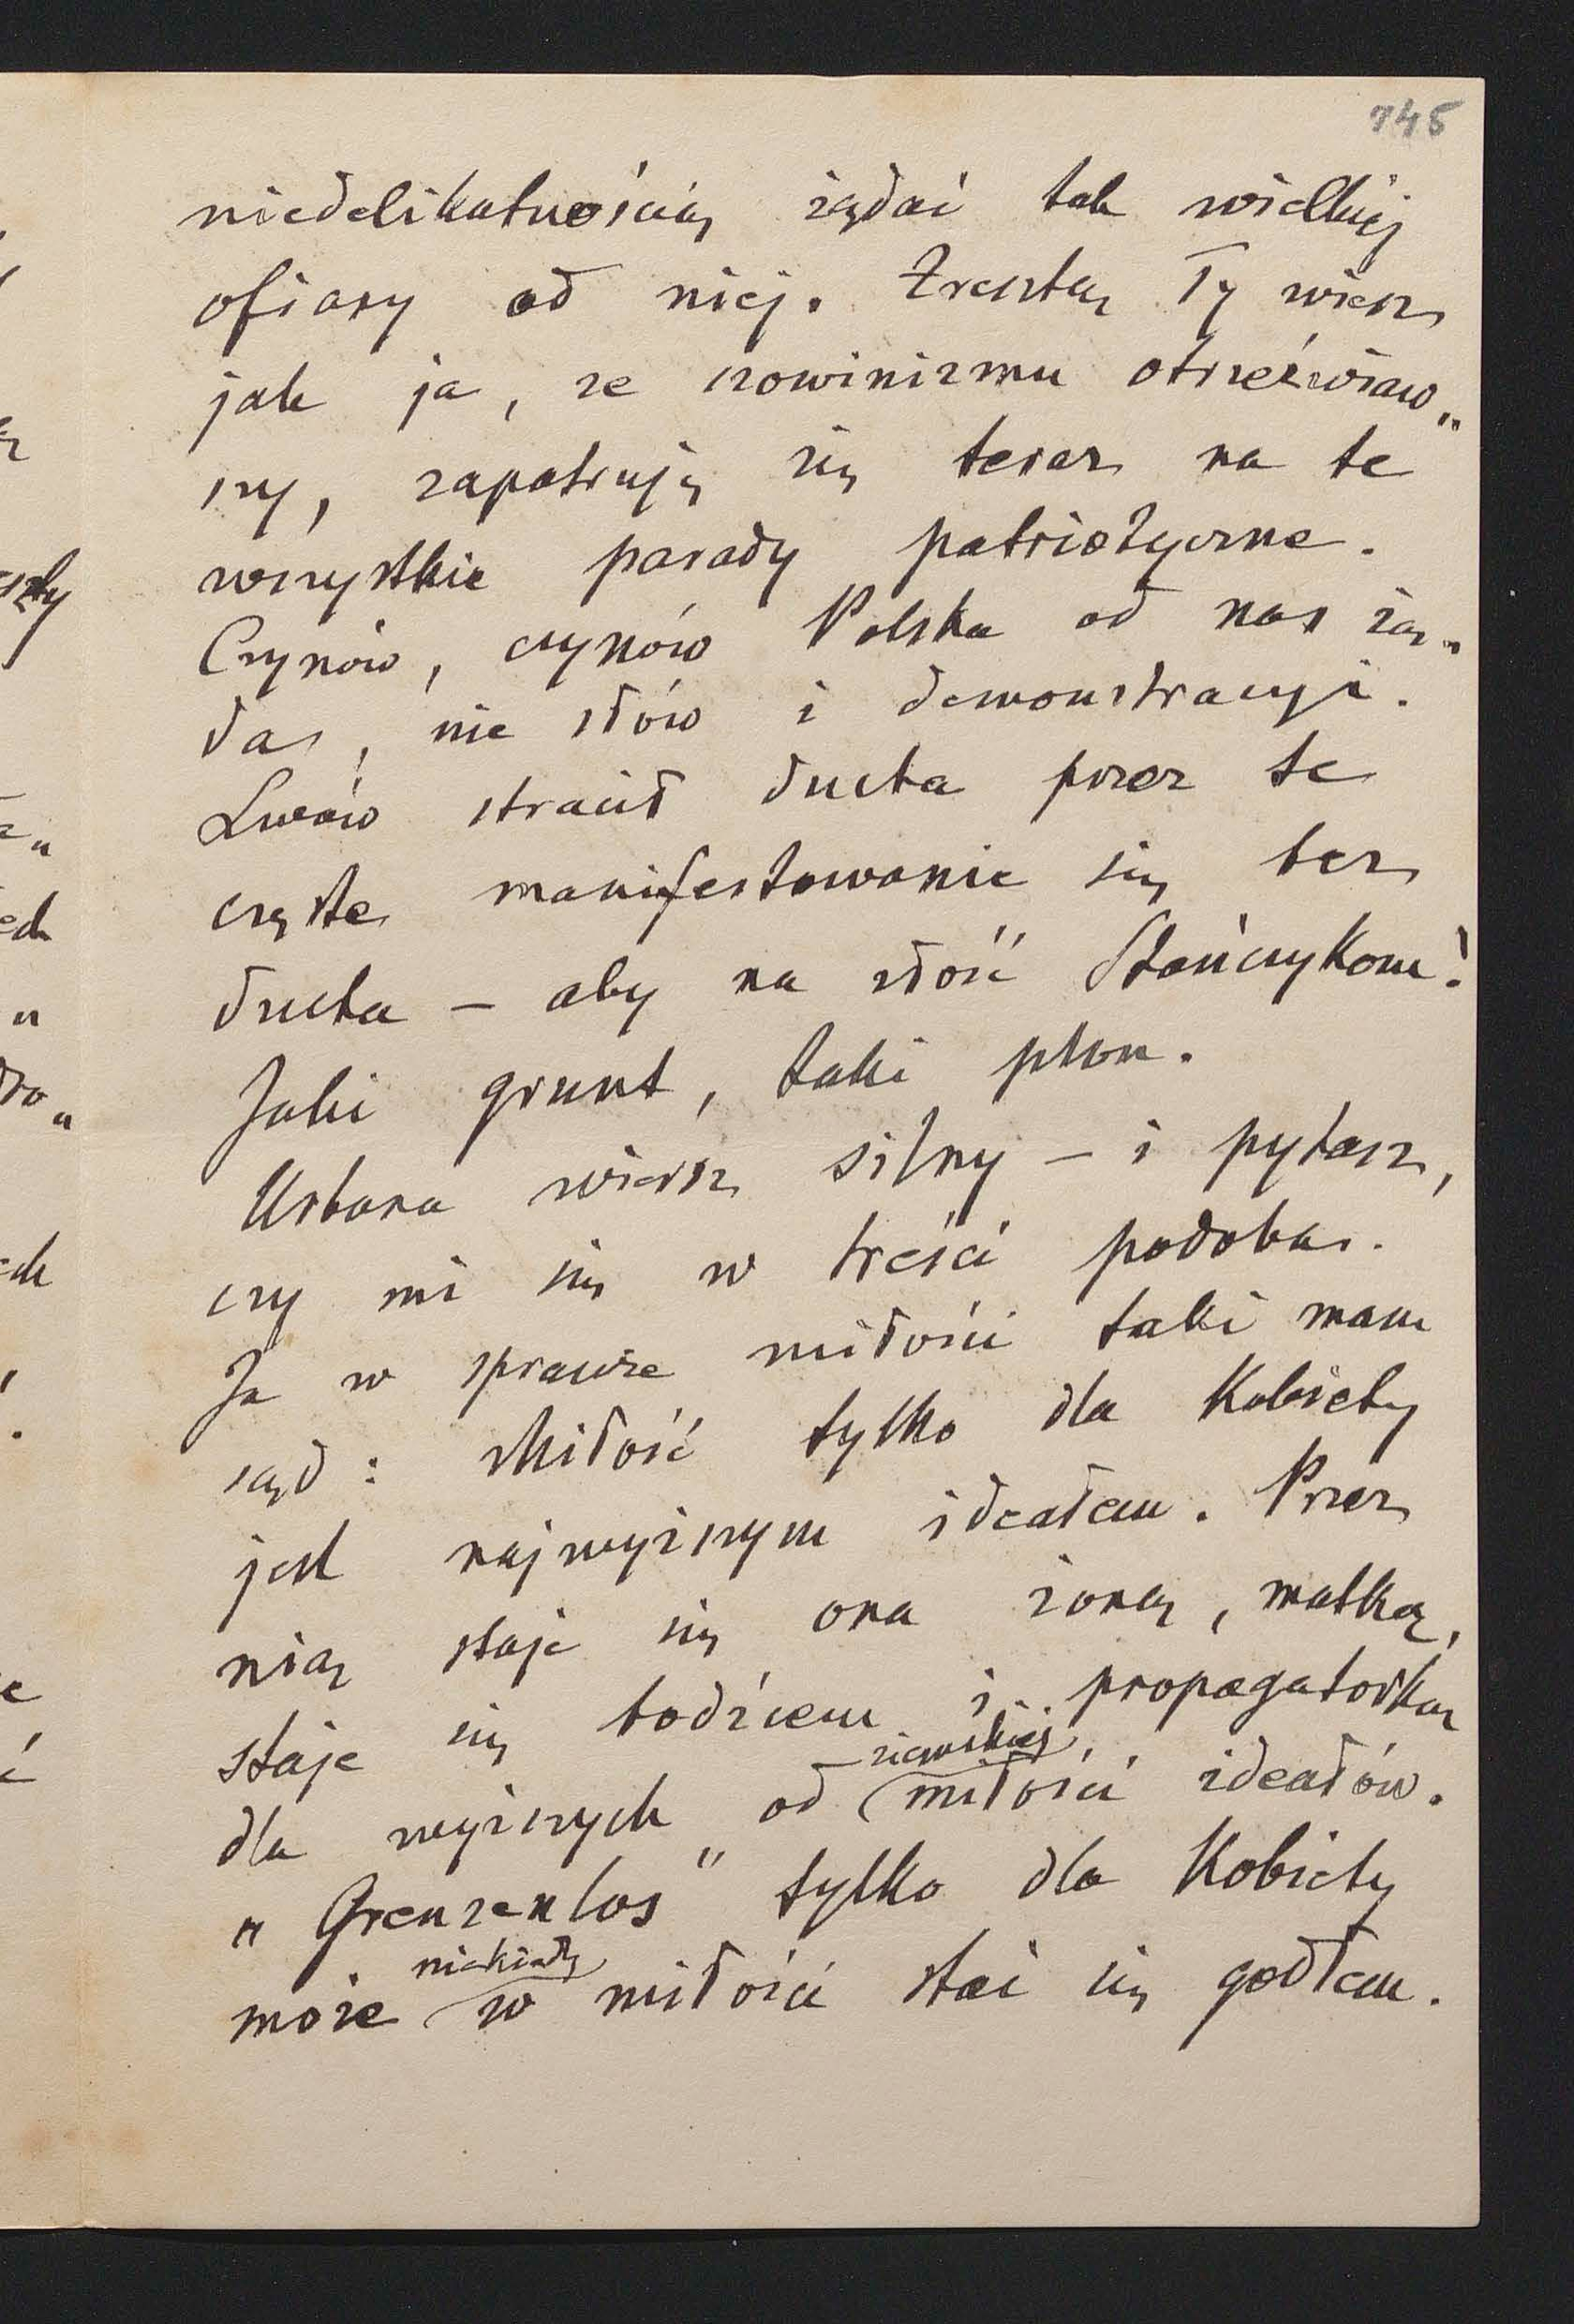 745
niedelikatnością żądać tak wielkiej
ofiary od niej. Zresztą Ty wiesz
jak ja, ze szowinizmu otrzeźwiaw„
szy, zapatruję się teraz na te
wszystkie parady patriotyczne.
Czynów, czynów Polska od nas żą„
da, nie słów i demonstracyi.
Lwów stracił ducha przez te
częste manifestowanie się bez
ducha – aby na złość Stańczykom!
Jaki grunt, taki plon.
Urbana wiersz silny – i pytasz,
czy mi się w treści podoba.
Ja w sprawie miłości taki mam
sąd: Miłość tylko dla Kobiety
jest najwyższym ideałem. Przez
nią staje się ona żoną, matką,
staje się bodźcem i propagatorką
dla wyższych od ziemskiej miłości ideałów.
„Grenzenlos" tylko dla Kobiety
może niekiedy w miłości stać się godłem.